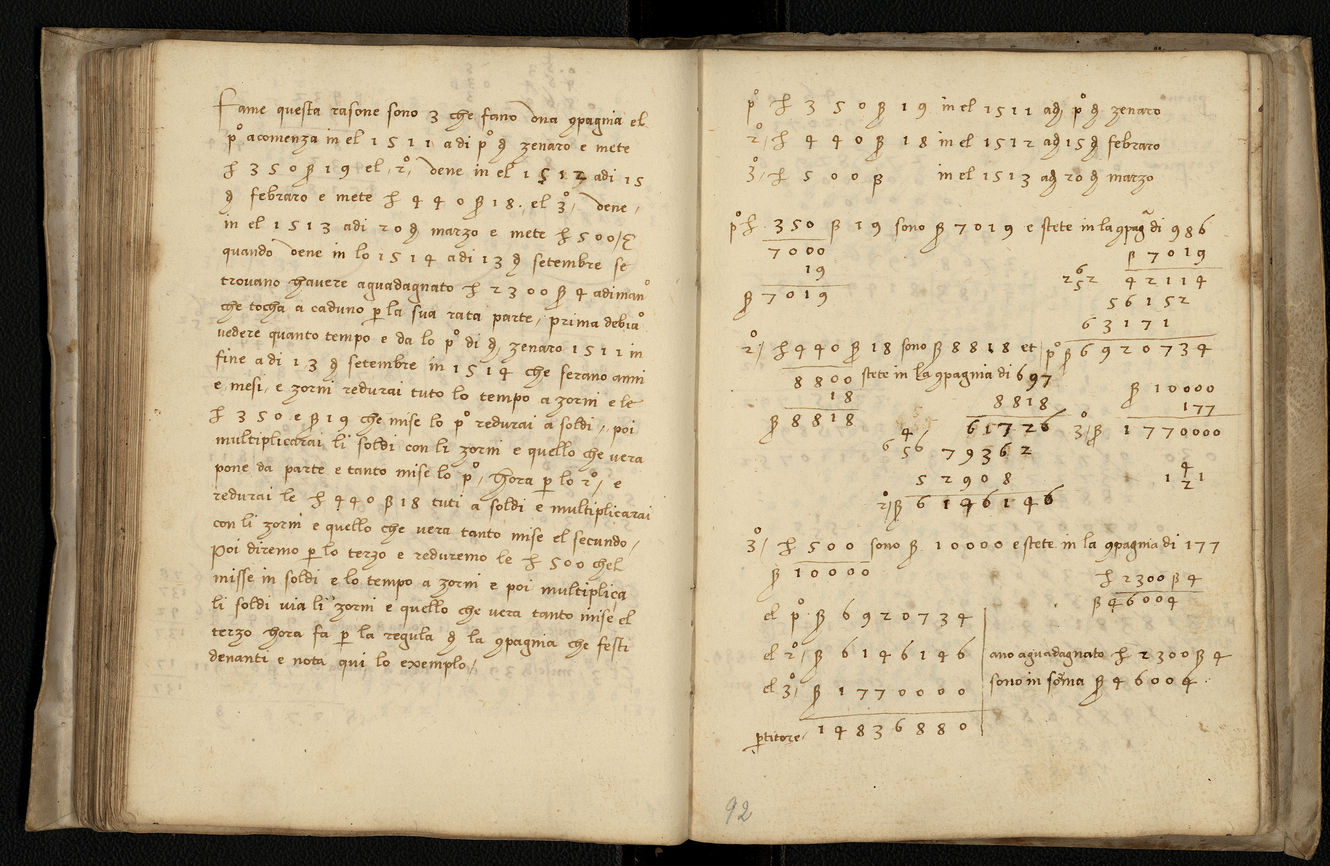 Fame questa rasone sono 3 che fano una 9pagnia el
p° acomenza in el 1511 adi p° d zenaro e mete
£ 350 ß 19 el 2° vene in el 1512 adi 15
d febraro e mete £ 440 ß 18. el 3°/ vene/
in el 1513 adi 20 d marzo e mete £ 500/
quando vene in lo 1514 adi 13 d setembre se
trovano havere aguadagnato £ 2300 ß 4 adiman°
che tocha a caduno p la sua rata parte/ prima debia°
vedere quanto tempo e da lo p° di d zenaro 1511 in
fine adi 13 d setembre in 1514 che serano anni
e mesi, e zorni redurai tuto lo tempo a zorni e le
£ 350 e ß 19 che mise lo p° redurai a soldi/ poi
multiplicarai li soldi con li zorni e quello che vera
pone da parte e tanto mise lo p°/ hora p lo 2°/ e
redurai le £ 440 ß 18 tuti a soldi e multiplicarai
con li zorni e quello che vera tanto mise el secundo/
Poi diremo p lo terzo e reduremo le £ 500 chel
misse in soldi e lo tempo a zorni e poi multiplica
li soldi via li zorni e quello che vera tanto mise el
terzo hora fa p la regula d la 9pagnia che festi
denanti e nota qui lo exemplo/
p° £ 350 ß 19 in el 1511 adi p° d zenaro
2°/ £ 440 ß 18 in el 1512 adi 15 d febraro
3°/ £ 500 ß in el 1513 adi 20 d marzo
p° £ 350 ß 19 sono ß 7019 e stete in la 9pag^a di 986
7000
19
ß 7019
ß 7019
6
2 5 2
42114
56152
63171
p° ß 6920734
2°/ £ 440 ß 18 sono ß 8818 et
stete in la 9pagnia di 697
8800
18
ß 8818
8818
4
6 5 6
61726
79362
52908
2°/ ß 6146146
ß 10000
177
3°/ ß 1770000
4
1 2 1
3°/ £ 500 sono ß 10000 e stete in la 9pagnia di 177
ß 10000
£ 2300 ß 4
ß 46004
el p° ß 6920734
el 2°/ ß 6146146
el 3°/ ß 1770000
ano aguadagnato £ 2300 ß 4
sono in soma ß 46004
ptitore/ 14836880
92